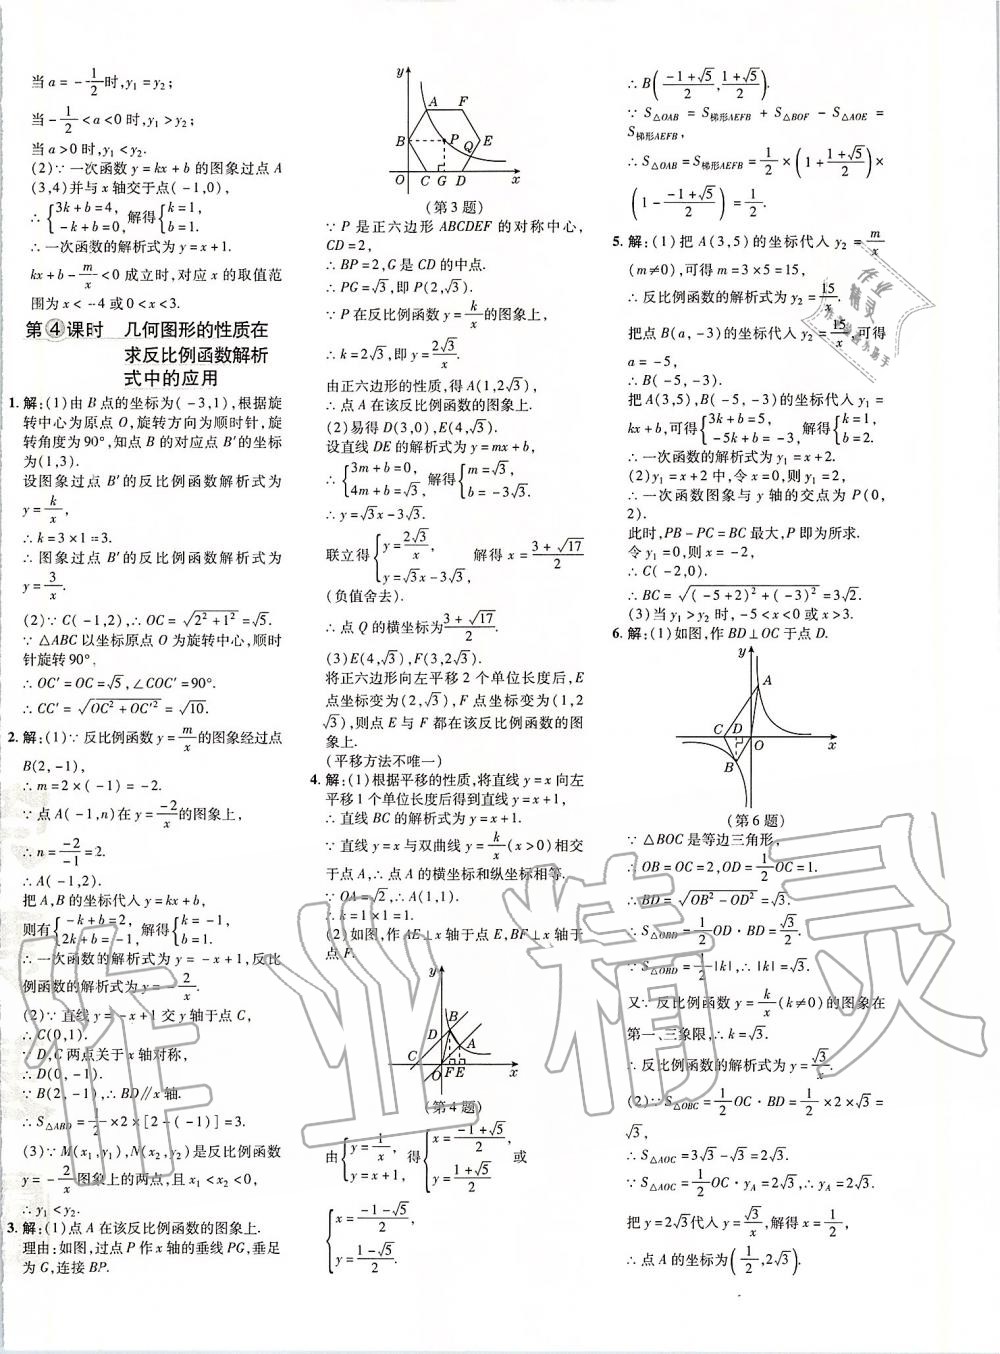 当 a = -1/2 时, y₁ = y₂;
当 -1/2 < a < 0 时, y₁ > y₂;
当 a > 0 时, y₁ < y₂.
(2)∵ 一次函数 y = kx + b 的图象过点 A
(3,4)并与 x 轴交于点( -1,0),
∴ { 3k + b = 4, -k + b = 0, 解得 { k = 1, b = 1.
∴ 一次函数的解析式为 y = x + 1.
kx + b - m/x < 0 成立时,对应 x 的取值范
围为 x < -4 或 0 < x < 3.
第④课时 几何图形的性质在
求反比例函数解析
式中的应用
1. 解:(1)由 B 点的坐标为( -3,1),根据旋
转中心为原点 O,旋转方向为顺时针,旋
转角度为 90°,知点 B 的对应点 B′的坐标
为(1,3).
设图象过点 B′的反比例函数解析式为
y = k/x,
∴ k = 3 × 1 = 3.
∴ 图象过点 B′的反比例函数解析式为
y = 3/x.
(2)∵ C( -1,2), ∴ OC = √(2² + 1²) = √5.
∵ △ABC 以坐标原点 O 为旋转中心,顺时
针旋转 90°,
∴ OC′ = OC = √5, ∠COC′ = 90°.
∴ CC′ = √(OC² + OC′²) = √10.
2. 解:(1)∵ 反比例函数 y = m/x 的图象经过点
B(2, -1),
∴ m = 2 × ( -1) = -2.
∵ 点 A( -1,n)在 y = -2/x 的图象上,
∴ n = -2/-1 = 2.
∴ A( -1,2).
把 A,B 的坐标代入 y = kx + b,
则有 { -k + b = 2, 2k + b = -1, 解得 { k = -1, b = 1.
∴ 一次函数的解析式为 y = -x + 1,反比
例函数的解析式为 y = -2/x.
(2)∵ 直线 y = -x + 1 交 y 轴于点 C,
∴ C(0,1).
∵ D,C 两点关于 x 轴对称,
∴ D(0, -1).
∵ B(2, -1), ∴ BD∥x 轴.
∴ S△ABD = 1/2 × 2 × [2 - ( -1)] = 3.
(3)∵ M(x₁,y₁),N(x₂,y₂)是反比例函数
y = -2/x 图象上的两点,且 x₁ < x₂ < 0,
∴ y₁ < y₂.
3. 解:(1)点 A 在该反比例函数的图象上.
理由:如图,过点 P 作 x 轴的垂线 PG,垂足
为 G,连接 BP.
y
A F
B P E
Q
O C G D x
(第 3 题)
∵ P 是正六边形 ABCDEF 的对称中心,
CD = 2,
∴ BP = 2,G 是 CD 的中点.
∴ PG = √3,即 P(2,√3).
∵ P 在反比例函数 y = k/x 的图象上,
∴ k = 2√3,即 y = 2√3/x.
由正六边形的性质,得 A(1,2√3),
∴ 点 A 在该反比例函数的图象上.
(2)易得 D(3,0),E(4,√3),
设直线 DE 的解析式为 y = mx + b,
∴ { 3m + b = 0, 4m + b = √3, 解得 { m = √3, b = -3√3.
∴ y = √3x - 3√3.
联立得 { y = 2√3/x, y = √3x - 3√3, 解得 x = (3 + √17)/2
(负值舍去).
∴ 点 Q 的横坐标为 (3 + √17)/2.
(3)E(4,√3),F(3,2√3).
将正六边形向左平移 2 个单位长度后,E
点坐标变为(2,√3),F 点坐标变为(1,2
√3),则点 E 与 F 都在该反比例函数的图
象上.
(平移方法不唯一)
4. 解:(1)根据平移的性质,将直线 y = x 向左
平移 1 个单位长度后得到直线 y = x + 1,
∴ 直线 BC 的解析式为 y = x + 1.
∵ 直线 y = x 与双曲线 y = k/x (x > 0)相交
于点 A, ∴ 点 A 的横坐标和纵坐标相等.
∵ OA = √2, ∴ A(1,1).
∴ k = 1 × 1 = 1.
(2)如图,作 AE⊥x 轴于点 E,BF⊥x 轴于
点 F.
y
B
D A
C
O F E x
(第 4 题)
由 { y = 1/x, y = x + 1, 得 { x = (-1 + √5)/2, y = (1 + √5)/2 或
{ x = (-1 - √5)/2, y = (1 - √5)/2.
∴ B( (-1 + √5)/2, (1 + √5)/2 ).
∵ S△OAB = S梯形AEFB + S△BOF - S△AOE =
S梯形AEFB,
∴ S△OAB = S梯形AEFB = 1/2 × ( 1 + (1 + √5)/2 ) ×
( 1 - (-1 + √5)/2 ) = 1/2.
5. 解:(1)把 A(3,5)的坐标代入 y₂ = m/x
(m≠0),可得 m = 3 × 5 = 15,
∴ 反比例函数的解析式为 y₂ = 15/x.
把点 B(a, -3)的坐标代入 y₂ = 15/x,可得
a = -5,
∴ B( -5, -3).
把 A(3,5),B( -5, -3)的坐标代入 y₁ =
kx + b,可得 { 3k + b = 5, -5k + b = -3, 解得 { k = 1, b = 2.
∴ 一次函数的解析式为 y₁ = x + 2.
(2)y₁ = x + 2 中,令 x = 0,则 y₁ = 2,
∴ 一次函数图象与 y 轴的交点为 P(0,
2).
此时,PB - PC = BC 最大,P 即为所求.
令 y₁ = 0,则 x = -2,
∴ C( -2,0).
∴ BC = √(( -5 + 2)² + ( -3)²) = 3√2.
(3)当 y₁ > y₂ 时, -5 < x < 0 或 x > 3.
6. 解:(1)如图,作 BD⊥OC 于点 D.
y
A
C D
O x
B
(第 6 题)
∵ △BOC 是等边三角形,
∴ OB = OC = 2,OD = 1/2 OC = 1.
∴ BD = √(OB² - OD²) = √3.
∴ S△OBD = 1/2 OD · BD = √3/2.
∵ S△OBD = 1/2 |k|, ∴ |k| = √3.
又∵ 反比例函数 y = k/x (k≠0)的图象在
第一、三象限, ∴ k = √3.
∴ 反比例函数的解析式为 y = √3/x.
(2)∵ S△OBC = 1/2 OC · BD = 1/2 × 2 × √3 =
√3,
∴ S△AOC = 3√3 - √3 = 2√3.
∵ S△AOC = 1/2 OC · yA = 2√3, ∴ yA = 2√3.
把 y = 2√3 代入 y = √3/x,解得 x = 1/2,
∴ 点 A 的坐标为 ( 1/2, 2√3 ).
作业精灵
作业
精灵